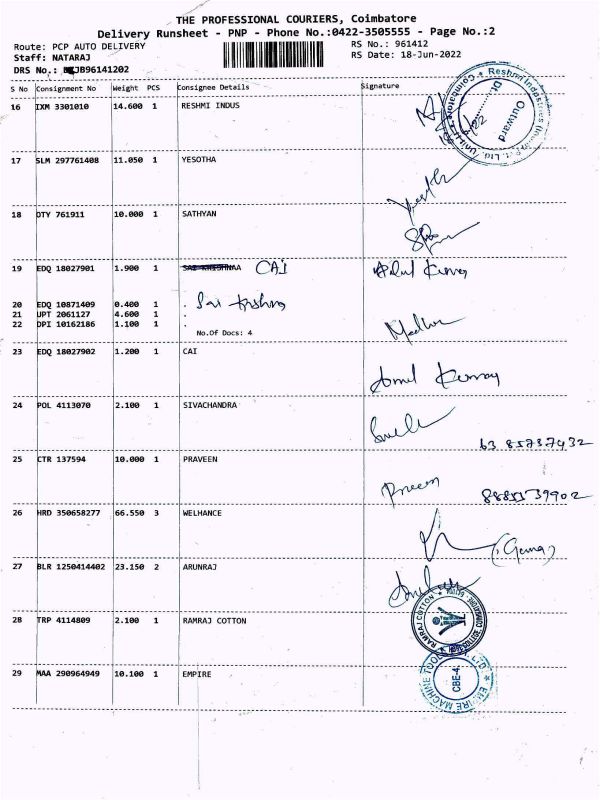 THE PROFESSIONAL COURIERS, Coimbatore
Delivery Runsheet - PNP - Phone No.:0422-3505555 - Page No.:2
Route: PCP AUTO DELIVERY RS No.: 961412
Staff: NATARAJ RS Date: 18-Jun-2022
DRS No.: JB96141202
S No Consignment No Weight PCS Consignee Details Signature
16 IXM 3301010 14.600 1 RESHMI INDUS
Outward
17 SLM 297761408 11.050 1 YESOTHA
18 OTY 761911 10.000 1 SATHYAN
19 EDQ 18027901 1.900 1 SAI KRISHNAA CAI
20 EDQ 10871409 0.400 1 . Sai Krishna
21 UPT 2061127 4.600 1 .
22 DPI 10162186 1.100 1 . Madhu
No.Of Docs: 4
23 EDQ 18027902 1.200 1 CAI
24 POL 4113070 2.100 1 SIVACHANDRA
25 CTR 137594 10.000 1 PRAVEEN Praveen
26 HRD 350658277 66.550 3 WELHANCE
27 BLR 1250414402 23.150 2 ARUNRAJ
28 TRP 4114809 2.100 1 RAMRAJ COTTON
RAMRAJ COTTON
29 MAA 290964949 10.100 1 EMPIRE
CBE-4